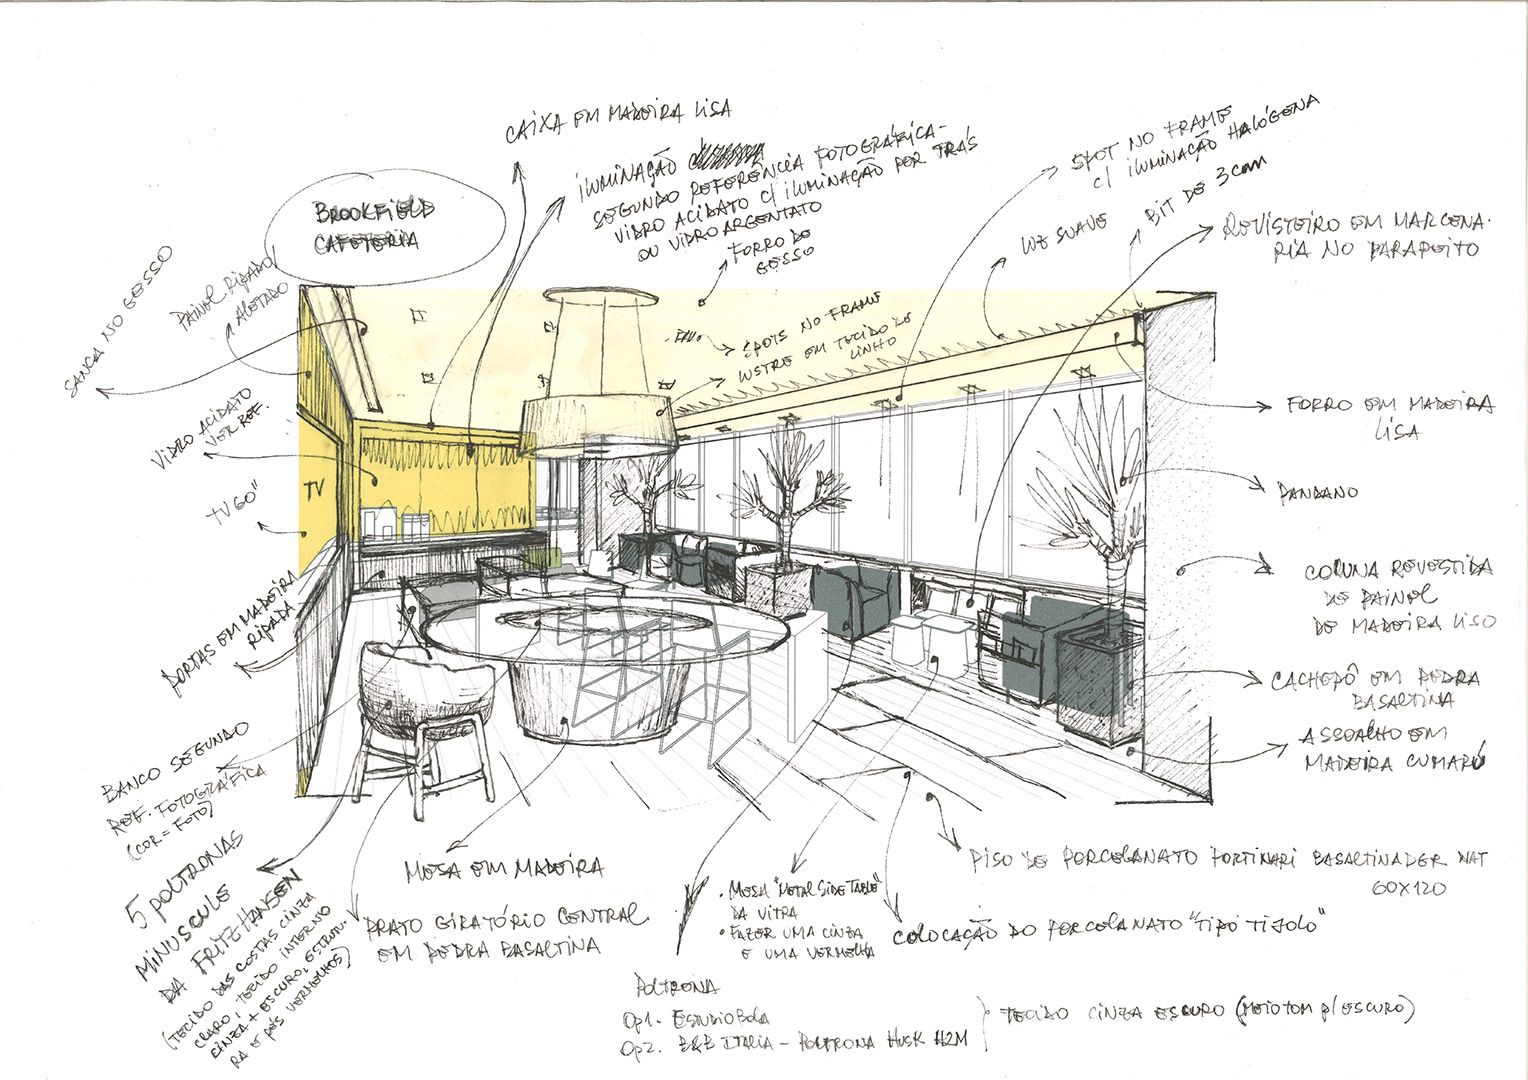 BROOKFIELD
CAFETERIA
CAIXA EM MADEIRA LISA
ILUMINAÇÃO
SEGUNDO REFERÊNCIA FOTOGRÁFICA-
VIDRO ACIDATO C/ ILUMINAÇÃO POR TRÁS
OU VIDRO ARGENTATO
FORRO DE
GESSO
SPOT NO FRAME
C/ ILUMINAÇÃO HALÓGENA
LUZ SUAVE
BIT DE 3cm
REVISTEIRO EM MARCENA-
RIA NO PARAPEITO
SANCA NO GESSO
PAINEL RIPADO/
ALETADO
SPOTS NO FRAME
LUSTRE EM TECIDO DE
LINHO
VIDRO ACIDATO
VER REF.
TV 60"
TV
FORRO EM MADEIRA
LISA
PANDANO
COLUNA REVESTIDA
DE PAINEL
DE MADEIRA LISO
PORTAS EM MADEIRA
RIPADA
CACHEPÔ EM PEDRA
BASALTINA
ASSOALHO EM
MADEIRA CUMARÚ
BANCO SEGUNDO
REF. FOTOGRÁFICA
(COR = FOTO)
5 POLTRONAS
MINUSCULE
DA FRITZ HANSEN
(TECIDO DAS COSTAS CINZA
CLARO, TECIDO INTERNO
CINZA + ESCURO, ESTRUTU-
RA E PÉS VERMELHOS)
MESA EM MADEIRA
PRATO GIRATÓRIO CENTRAL
EM PEDRA BASALTINA
• MESA "METAL SIDE TABLE"
DA VITRA
• FAZER UMA CINZA
E UMA VERMELHA
PISO DE PORCELANATO PORTINARI BASALTINA DER NAT
60X120
COLOCAÇÃO DO PORCELANATO "TIPO TIJOLO"
POLTRONA
OP1. ESTUDIO BOLA
OP2. B&B ITALIA - POLTRONA HUSK H2M
TECIDO CINZA ESCURO (MEIO TOM P/ ESCURO)